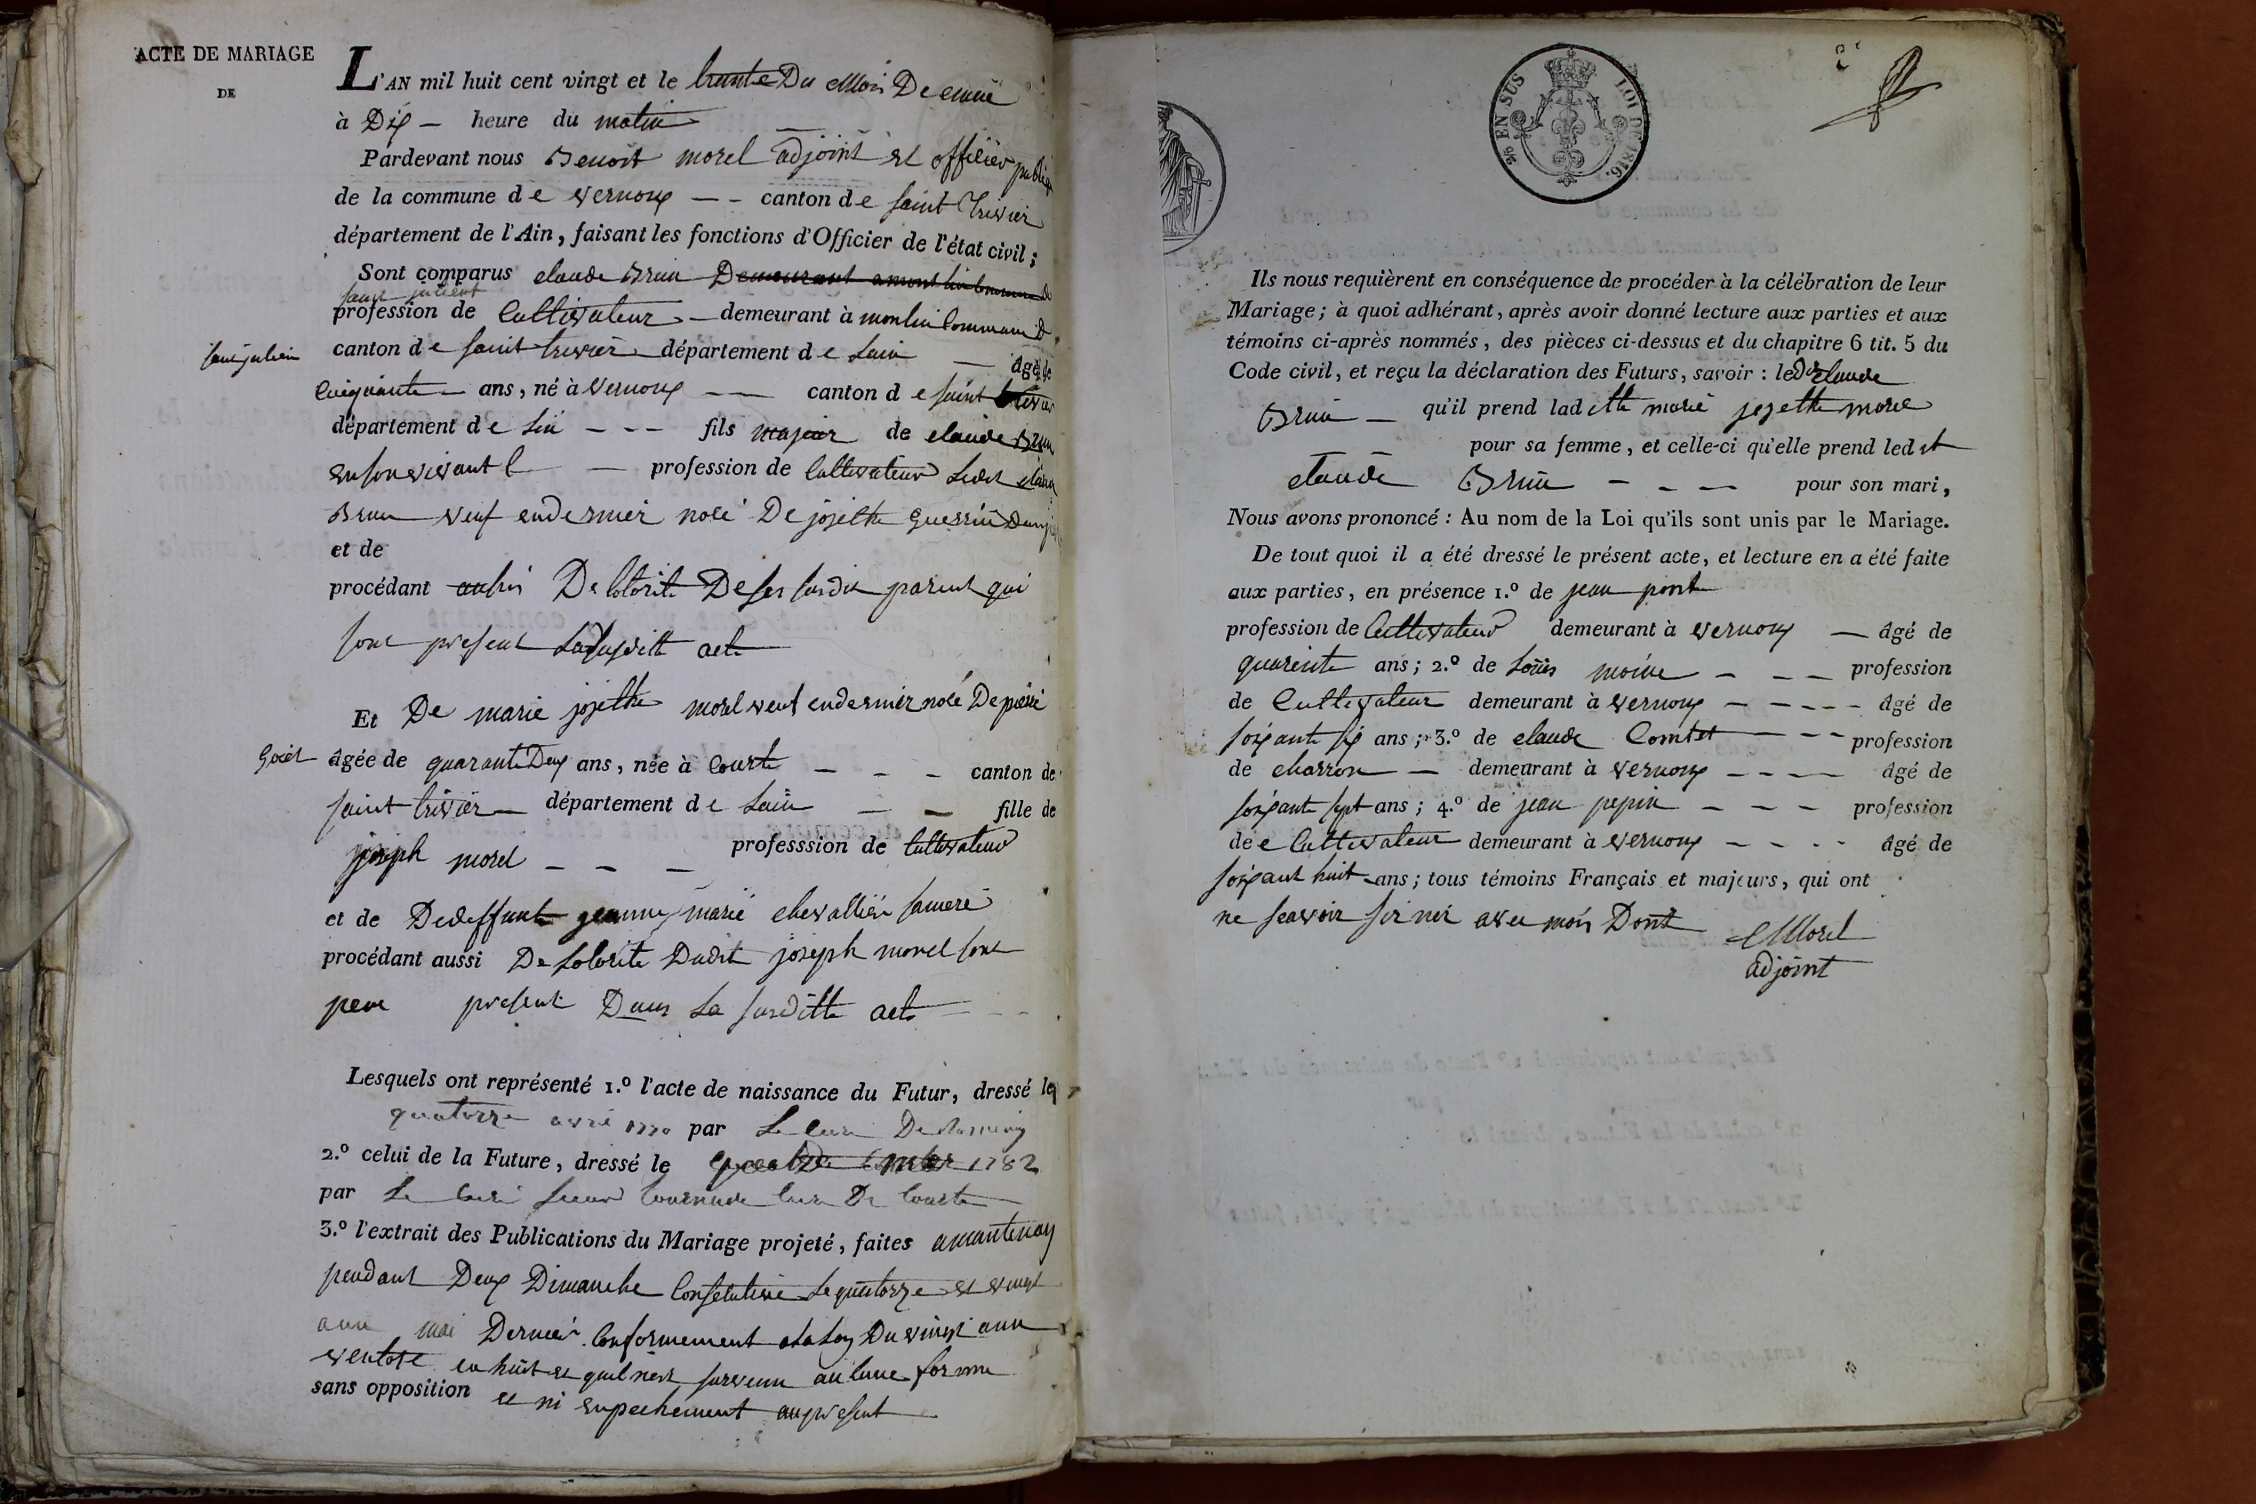 ACTE DE MARIAGE
DE
L'AN mil huit cent vingt et le trante Du Mois De
à Dix heure du matin
Pardevant nous Benoit morel adjoint et officier publiq
de la commune de vernoux canton de saint trivier
département de l'Ain, faisant les fonctions d'Officier de l'état civil;
Sont comparus claude Brun Demeurant a montlin commune de
saint julient
profession de cultivateur demeurant à montlin commune d
saint julien
canton de saint trivier département de Lain âgé de
cinquante ans, né à vernoux canton de saint trivier
département de Lin fils majeur de claude Brun
en son vivant profession de cultivateur Ledit claude
Brun veuf en dernier nosé De josethe guerrin
et de
procédant aussi De lotorite De ses susdit parent qui
sont present Lad susditte acte
Et De marie josethe morel veuf en dernier nosé De pierre
goiet
âgée de quarante Deux ans, née à Courte canton de
saint trivier département de Lain fille de
joseph morel professsion de cultivateur
et de De deffunte jeanne marie chevallier sa mere
procédant aussi De Lotorite Dudit joseph morel son
pere present Dans La susditte acte
Lesquels ont représenté 1.º l'acte de naissance du Futur, dressé le
quatorze avri 1770 par Le cure De
2.º celui de la Future, dressé le 1782
par Le cure sieur cure De Courte
3.º l'extrait des Publications du Mariage projeté, faites a mantenay
pendant Deux Dimanche Consecutive Le quatorze et vingt
aun mai Dernier Conformement a La Loy Du vingt aun
ventose en huit et quil nest survenu aucune forme
sans opposition et ni enpechement au present
96 EN SUS
LOI DE 1816.
2
Ils nous requièrent en conséquence de procéder à la célébration de leur
Mariage; à quoi adhérant, après avoir donné lecture aux parties et aux
témoins ci-après nommés, des pièces ci-dessus et du chapitre 6 tit. 5 du
Code civil, et reçu la déclaration des Futurs, savoir: led claude
Brun qu'il prend laditte marie josethe morel
pour sa femme, et celle-ci qu'elle prend ledit
claude Brun pour son mari,
Nous avons prononcé: Au nom de la Loi qu'ils sont unis par le Mariage.
De tout quoi il a été dressé le présent acte, et lecture en a été faite
aux parties, en présence 1.º de jean pont
profession de cultivateur demeurant à vernoux âgé de
quarente ans; 2.º de Louis moine profession
de cultivateur demeurant à vernoux âgé de
soixante six ans; 3.º de claude Comtet profession
de charron demeurant à vernoux âgé de
soixante sept ans; 4.º de jean pepin profession
de cultivateur demeurant à vernoux âgé de
soixant huit ans; tous témoins Français et majeurs, qui ont
ne scavoir sinner avec mois Dont Morel
adjoint